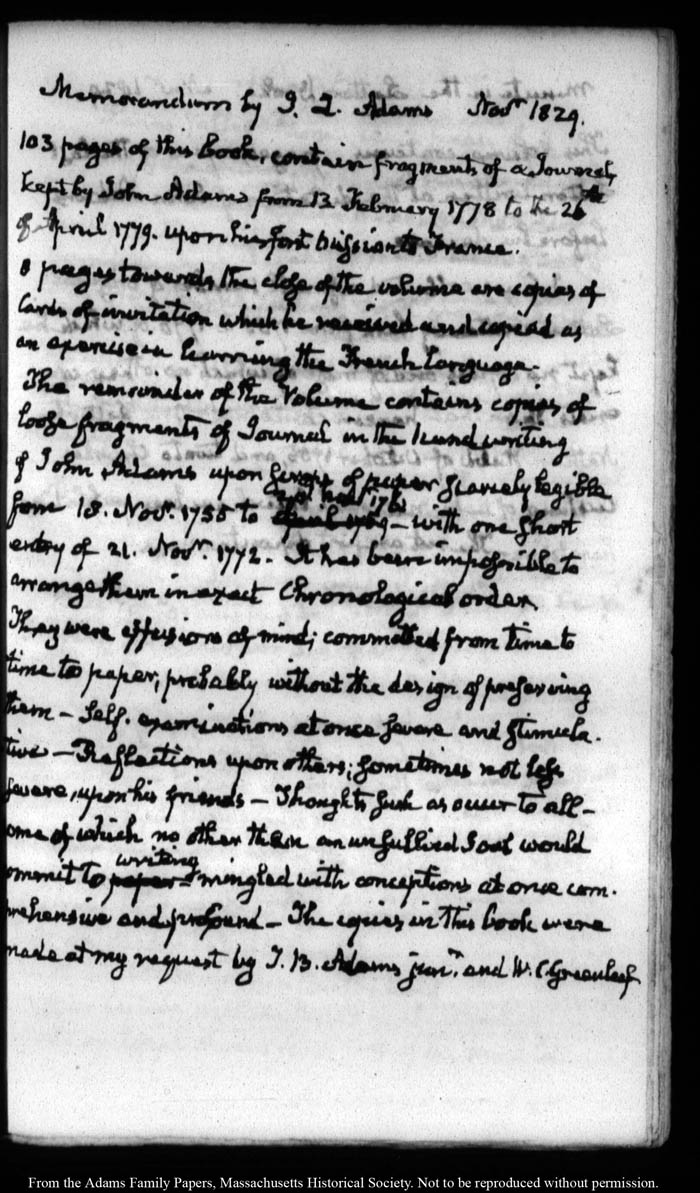 Memorandum by J. Q. Adams Novr 1829.
103 pages of this Book, contain fragments of a Journal,
kept by John Adams from 13 February 1778 to the 26th
of April 1779. upon his first Mission to France.
8 pages towards the close of the volume are copies of
Cards of invitation which he received and copied as
an exercise in learning the French language.
The remainder of the Volume contains copies of
loose fragments of Journal in the hand writing
of John Adams upon scraps of paper scarcely legible
from 18. Novr. 1755 to Novr 176 April 1759 — with one short
entry of 21. Novr. 1772. It has been impossible to
arrange them in exact Chronological order
They were effusions of mind; committed from time to
time to paper, probably without the design of preserving
them — Self-examinations at once severe and stimula-
tive — Reflections upon others; sometimes not less
severe, upon his friends — Thoughts such as occur to all —
ome of which no other than an unsullied Soul would
writing
ommit to paper — mingled with conceptions at once com-
prehensive and profound — The copies in this book were
made at my request by T. B. Adams junr. and W. C. Greenleaf
From the Adams Family Papers, Massachusetts Historical Society. Not to be reproduced without permission.